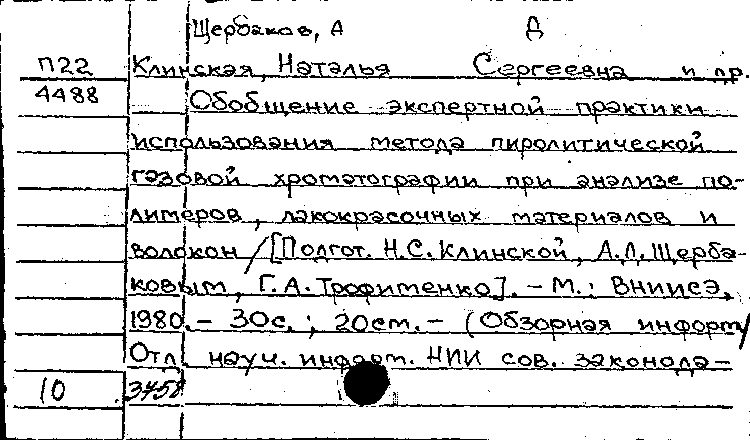 Щербаков, А Д
П22 Клинская, Наталья Сергеевна и др.
4488 Обобщение экспертной практики
использования метода пиролитической
газовой хроматографии при анализе по-
лимеров, лакокрасочных материалов и
волокон / [Подгот. Н.С. Клинской, А.Л. Щерба-
ковым, Г.А. Трофименко]. - М.: ВНИИСЭ,
1980. - 30с.; 20см. - (Обзорная информ/
Отд. науч. информ. НИИ сов. законода-
10 3458